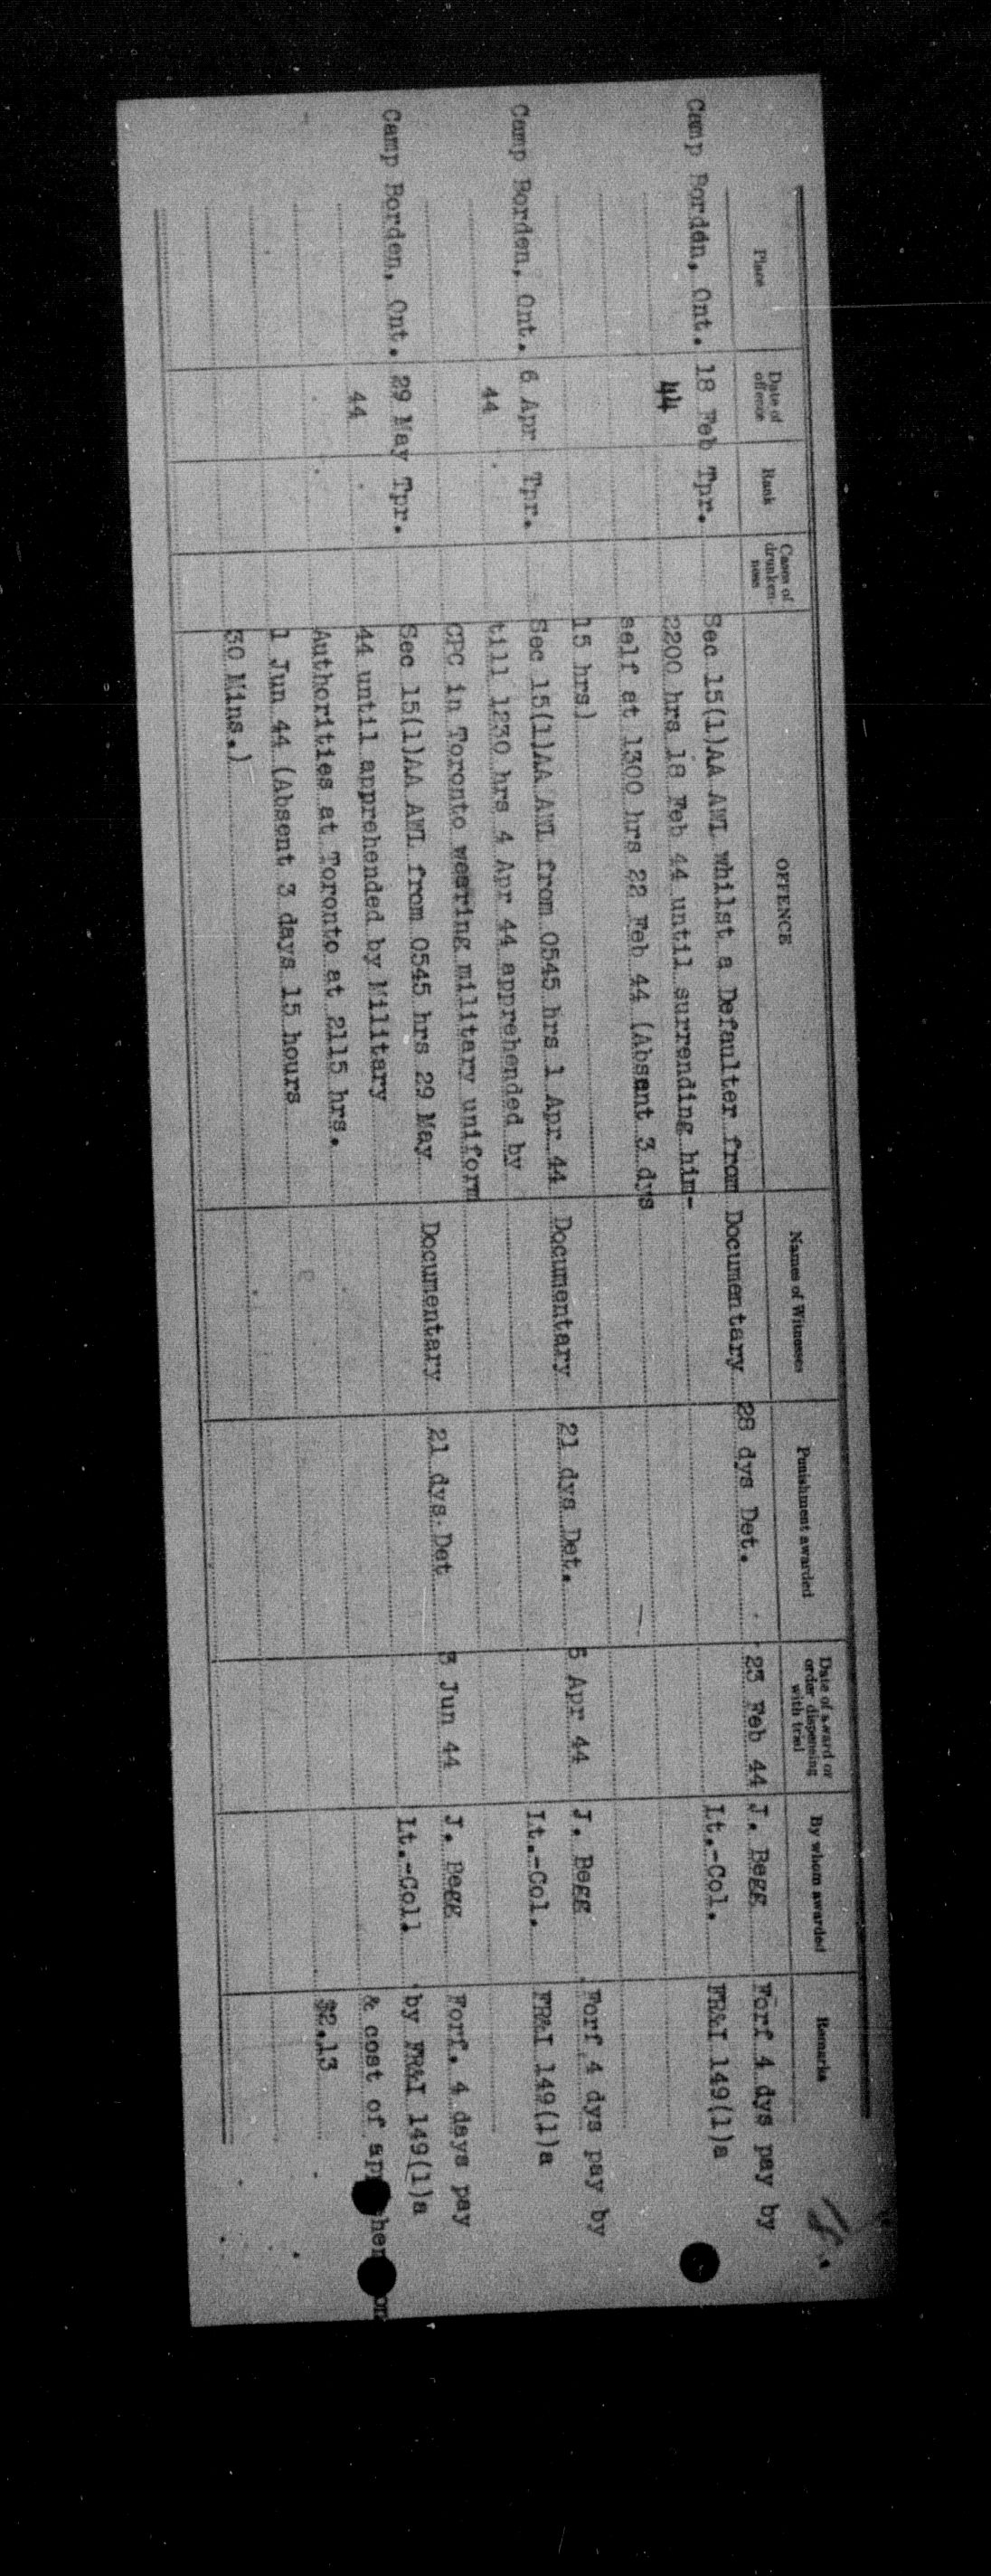 Place Date of offence Rank Cases of drunken-ness OFFENCE Names of Witnesses Punishment awarded Date of award or order dispensing with trial By whom awarded Remarks
Camp Borden, Ont. 18 Feb Tpr. Sec 15(1)AA AWL whilst a Defaulter from Documentary 28 dys Det. 23 Feb 44 J. Begg Forf 4 dys pay by
44 2200 hrs 18 Feb 44 until surrending him- Lt.-Col. FR&I 149(1)a
self at 1300 hrs 22 Feb 44 (Absent 3 dys
15 hrs)
Camp Borden, Ont. 6 Apr Tpr. Sec 15(1)AA AWL from 0545 hrs 1 Apr 44 Documentary 21 dys Det. 6 Apr 44 J. Begg Forf 4 dys pay by
44 till 1230 hrs 4 Apr 44 apprehended by Lt.-Col. FR&I 149(1)a
CPC in Toronto wearing military uniform
Camp Borden, Ont. 29 May Tpr. Sec 15(1)AA AWL from 0545 hrs 29 May Documentary 21 dys Det 3 Jun 44 J. Begg Forf. 4 days pay
44 44 until apprehended by Military Lt.-Coll by FR&I 149(1)a
Authorities at Toronto at 2115 hrs. & cost of
1 Jun 44 (Absent 3 days 15 hours $2.13
30 Mins.)